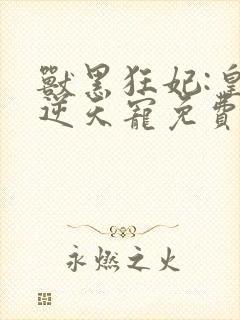 獸黑狂妃:皇
逆天寵免費
永燃之火